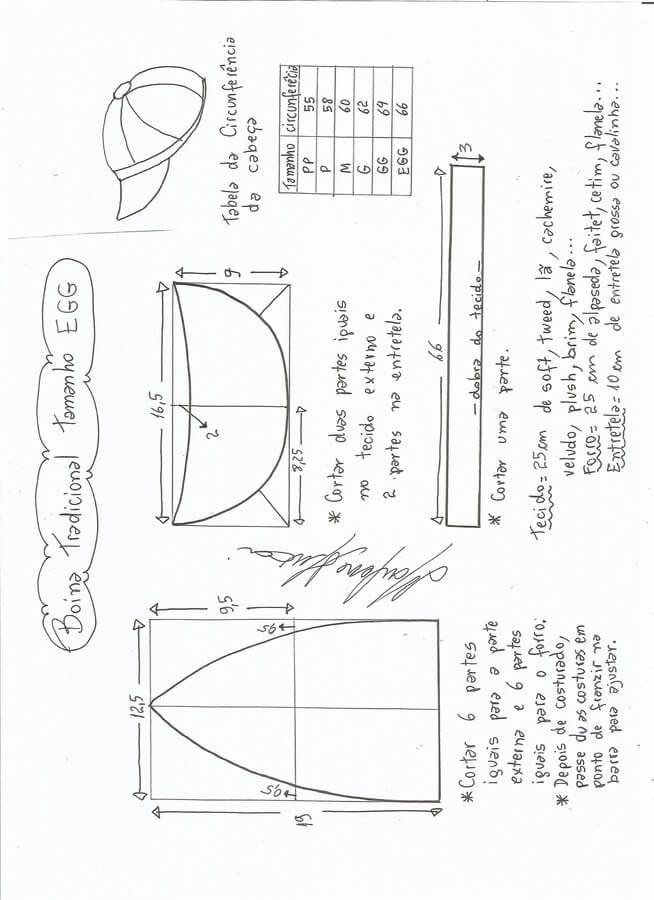 Boina Tradicional Tamanho EGG
12,5
19
9,5
0,5
0,5
* Cortar 6 partes
iguais para a parte
externa e 6 partes
iguais para o forro.
* Depois de costurado,
passe duas costuras em
ponto de franzir na
barra para ajustar.
16,5
9
2
8,25
* Cortar duas partes iguais
no tecido externo e
2 partes na entretela.
Tabela da Circunferência
da cabeça
Tamanho circunferêcia
PP 55
P 58
M 60
G 62
GG 64
EGG 66
66
3
— dobra do tecido —
* Cortar uma parte.
Tecido = 25cm de soft, tweed, lã, cachemire,
veludo, plush, brim, flanela...
Forro = 25 cm de alpaseda, faitet, cetim, flanela...
Entretela = 10 cm de entretela grossa ou cavalinha...